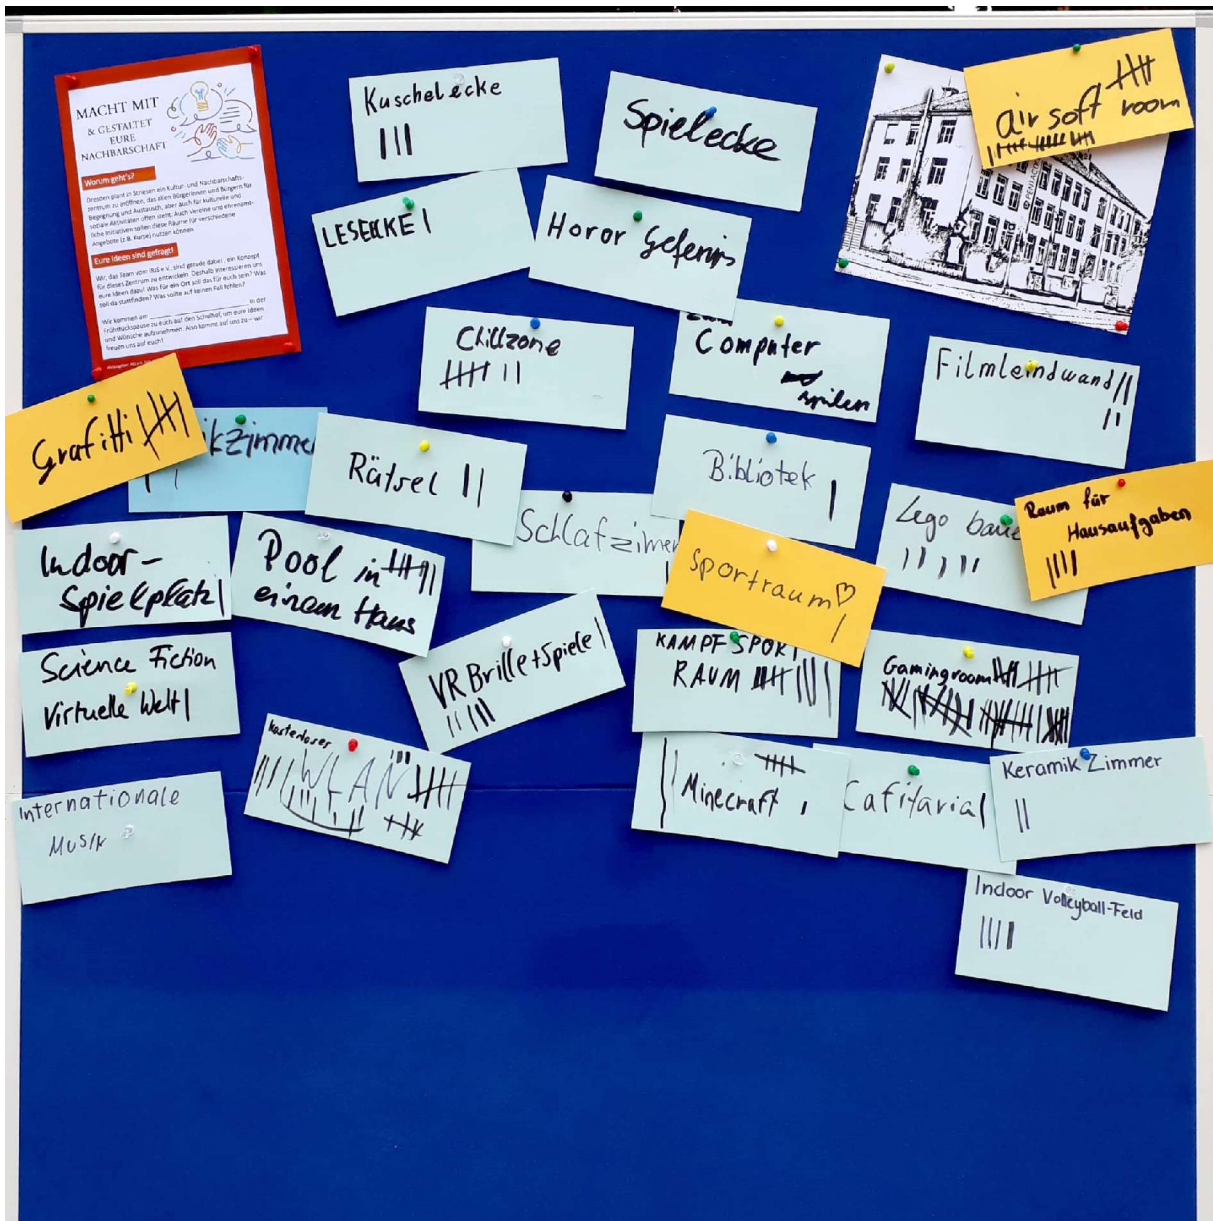 MACHT MIT
& GESTALTET
EURE
NACHBARSCHAFT
Worum geht's?
Dresden plant in Striesen ein Kultur- und Nachbarschafts-
zentrum zu eröffnen, das allen Bürgerinnen und Bürgern für
Begegnung und Austausch, aber auch für kulturelle und
soziale Aktivitäten offen steht. Auch Vereine und ehrenamt-
liche Initiativen sollen diese Räume für verschiedene
Angebote (z.B. Kurse) nutzen können.
Eure Ideen sind gefragt!
Wir, das Team vom IRIS e.V., sind gerade dabei, ein Konzept
für dieses Zentrum zu entwickeln. Deshalb interessieren uns
eure Ideen dazu! Was für ein Ort soll das für euch sein? Was
soll da stattfinden? Was sollte auf keinen Fall fehlen?
Wir kommen am in der
Frühstückspause zu euch auf den Schulhof, um eure Ideen
und Wünsche aufzunehmen. Also kommt auf uns zu – wir
freuen uns auf euch!
Kuschelecke
Spielecke
air soft
room
LESEECKE
Horor Gefenis
Chillzone
Computer
spilen
Filmleindwand
Grafitti
ikzimmer
Rätsel
Bibliotek
Lego baue
Raum für
Hausaufgaben
Indoor-
Spielplatz
Pool in
einem Haus
Schlafzimer
Sportraum♡
Science Fiction
Virtuelle Welt
VR Brille + Spiele
KAMPFSPORT
RAUM
Gamingroom
kostenloser
WLAN
Minecraft
Cafitaria
Keramik Zimmer
Internationale
Musik
Indoor Volleyball-Feld